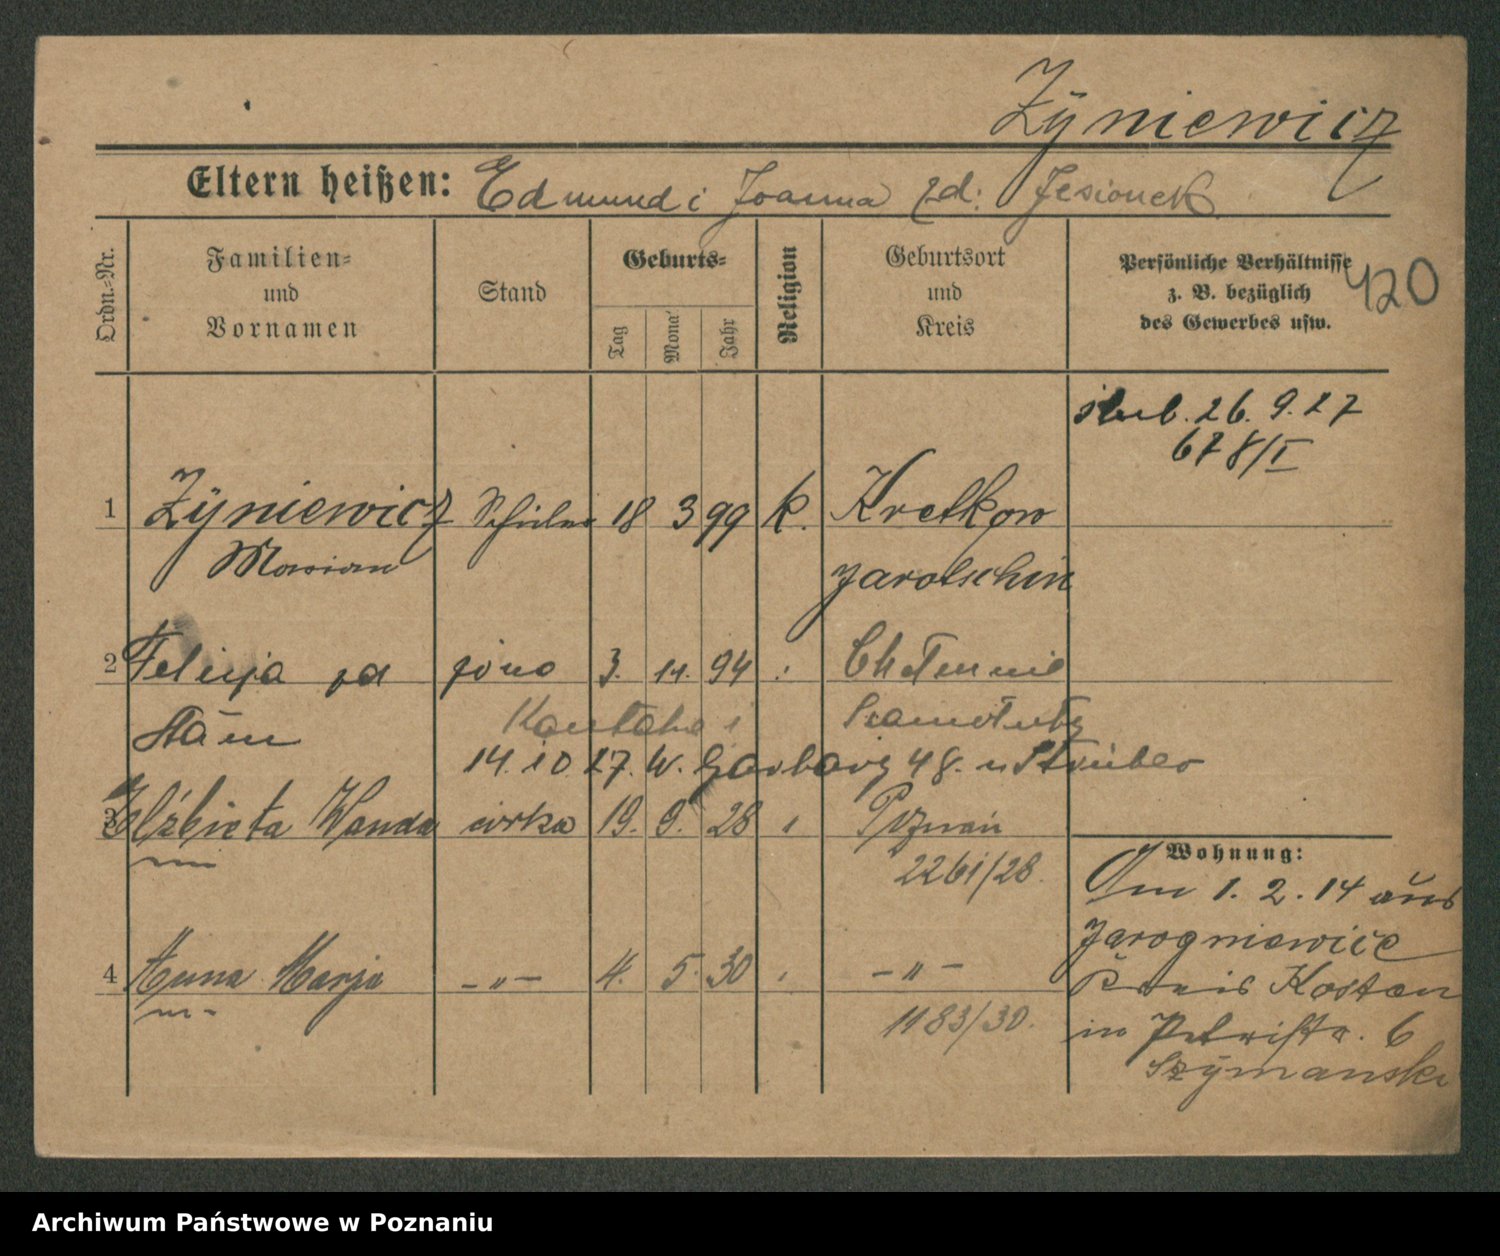 Zÿniewicz
Eltern heißen: Edmund i Joanna zd: Jesionek
Ordn.=Nr.
Familien=
und
Vornamen
Stand
Geburts=
Tag
Monat
Jahr
Religion
Geburtsort
und
Kreis
Persönliche Verhältnisse
z. B. bezüglich
des Gewerbes usw.
420
ślub. 26. 9. 27
678/I
1 Zÿniewicz Schüler 18 3 99 k. Kretkow
Marian Jarotschin
2 Felicja zd żona 3. 11. 94
Szamotuły
14. 10 27. W. Garbary 48. u Stküber
3 Elżbieta Wanda córka 19. 9. 28 Poznań
2261/28.
4 Anna Marja -"- 4. 5. 30 -"-
1183/30.
Wohnung:
Am 1. 2. 14 aus
Jarogniewice
Kreis Kosten
in Petristr. 6
Szÿmanski
Archiwum Państwowe w Poznaniu